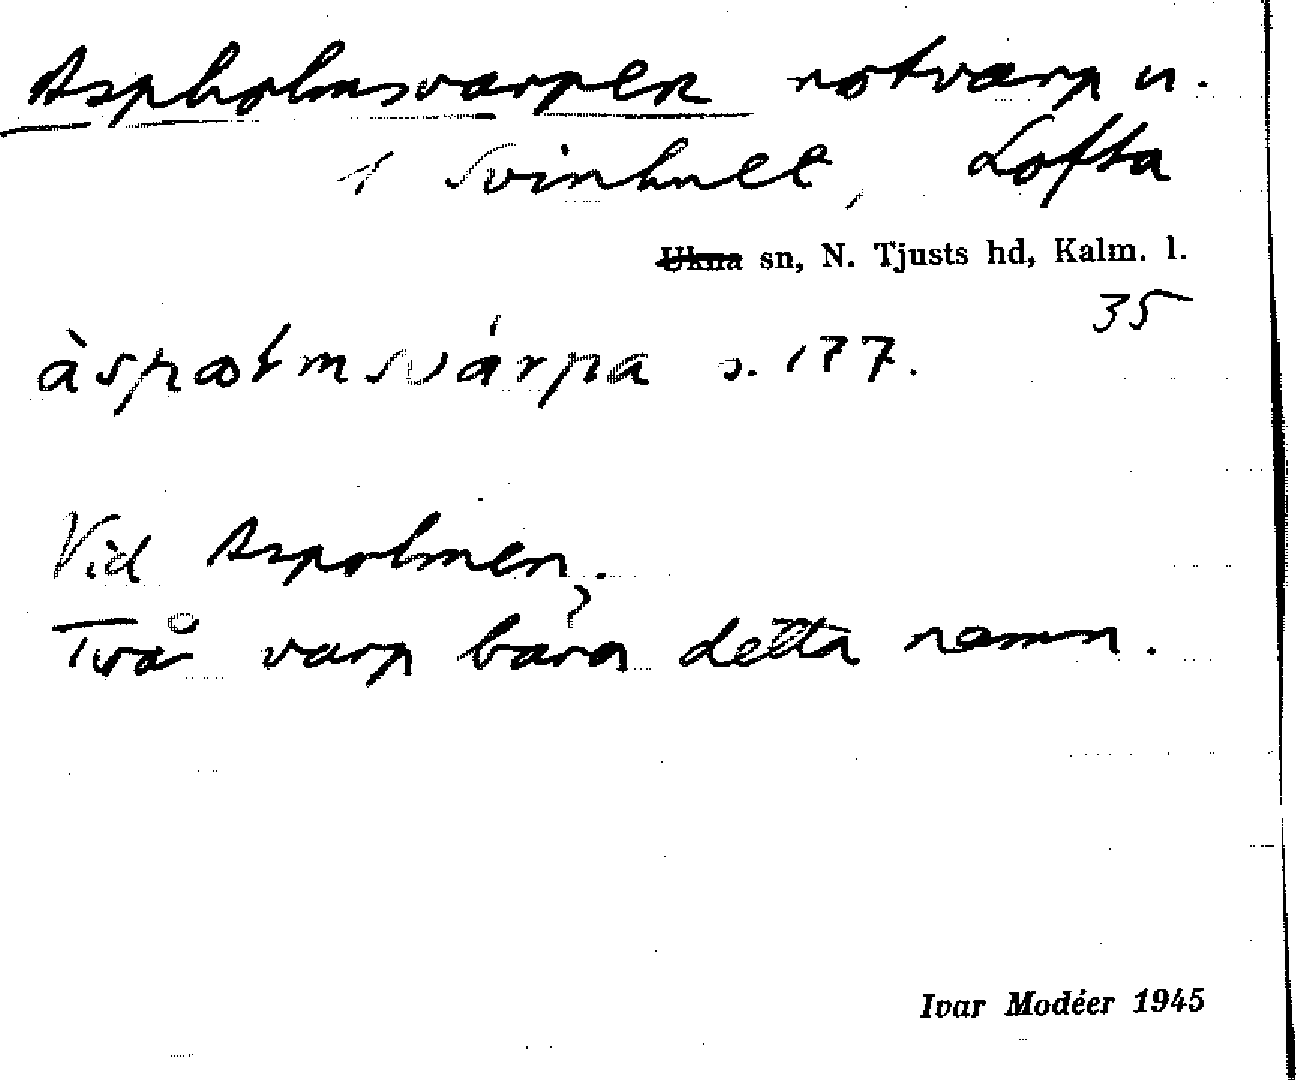 Aspholmsvarpen notvarp u.
1 Svinhult, Lofta
Ukna sn, N. Tjusts hd, Kalm. l.
35
àspɷlmsvárpa s. 177.
Vid Aspolmen.
Två varp bära detta namn.
Ivar Modéer 1945